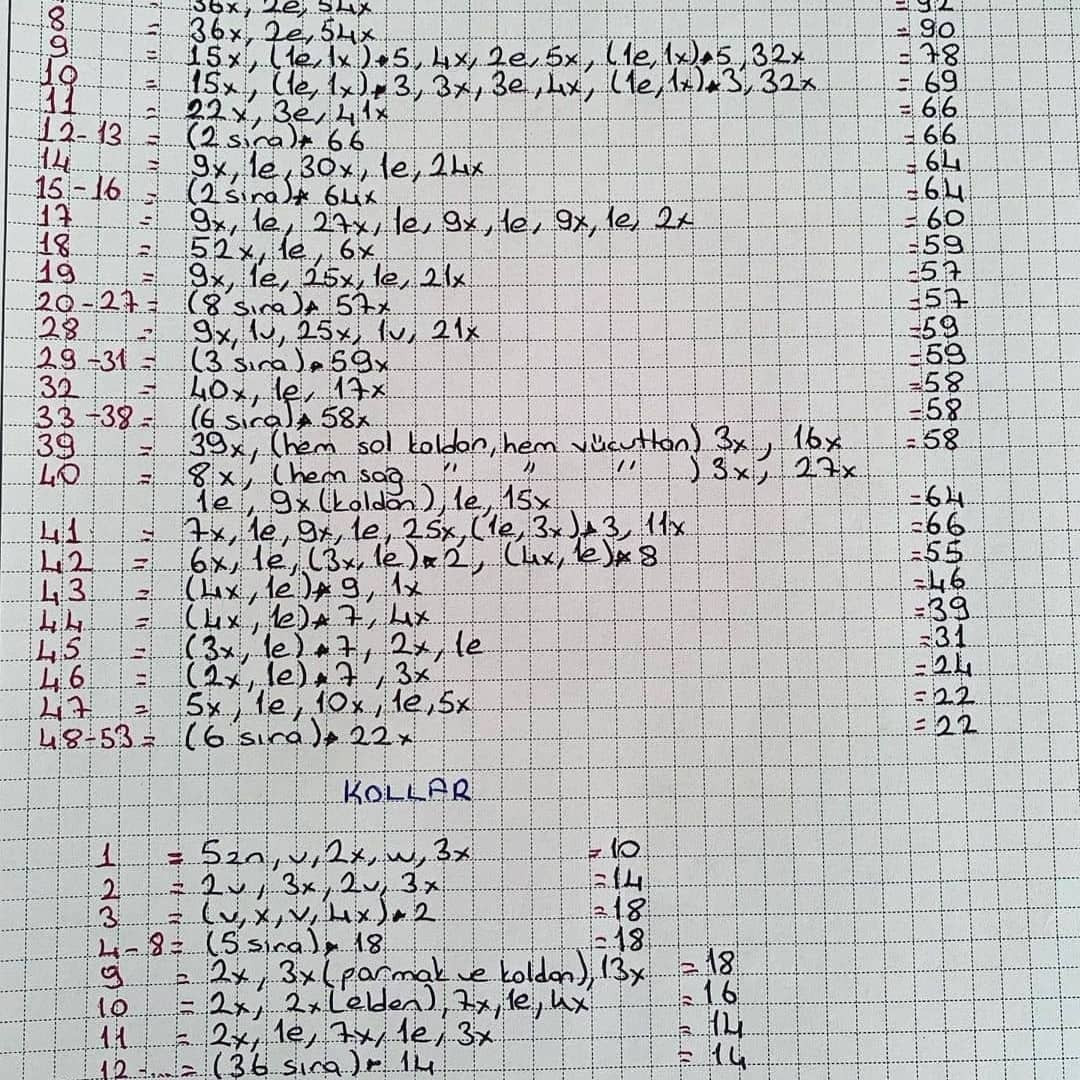 36x, 2e, 54x = 92
8 = 36x, 2e, 54x = 90
9 = 15x, (1e,1x)*5, 4x, 2e, 5x, (1e,1x)*5, 32x = 78
10 = 15x, (1e,1x)*3, 3x, 3e, 4x, (1e,1x)*3, 32x = 69
11 = 22x, 3e, 41x = 66
12-13 = (2 sıra)* 66 = 66
14 = 9x, 1e, 30x, 1e, 24x = 64
15-16 = (2 sıra)* 64x = 64
17 = 9x, 1e, 27x, 1e, 9x, 1e, 9x, 1e, 2x = 60
18 = 52x, 1e, 6x = 59
19 = 9x, 1e, 25x, 1e, 21x = 57
20-27 = (8 sıra)* 57x = 57
28 = 9x, 1v, 25x, 1v, 21x = 59
29-31 = (3 sıra)*59x = 59
32 = 40x, 1e, 17x = 58
33-38 = (6 sıra)* 58x = 58
39 = 39x, (hem sol koldan, hem vücuttan) 3x, 16x = 58
40 = 8x, (hem sağ " " " ) 3x, 27x
1e, 9x (koldan), 1e, 15x = 64
41 = 7x, 1e, 9x, 1e, 25x, (1e, 3x)*3, 11x = 66
42 = 6x, 1e, (3x, 1e)*2, (4x, 1e)*8 = 55
43 = (4x, 1e)*9, 1x = 46
44 = (4x, 1e)*7, 4x = 39
45 = (3x, 1e)*7, 2x, 1e = 31
46 = (2x, 1e)*7, 3x = 24
47 = 5x, 1e, 10x, 1e, 5x = 22
48-53 = (6 sıra)* 22x = 22
KOLLAR
1 = 5zn, v, 2x, w, 3x = 10
2 = 2v, 3x, 2v, 3x = 14
3 = (v, x, v, 4x)*2 = 18
4-8 = (5 sıra)* 18 = 18
9 = 2x, 3x (parmak ve koldan), 13x = 18
10 = 2x, 2x (elden), 7x, 1e, 4x = 16
11 = 2x, 1e, 7x, 1e, 3x = 14
12-... = (36 sıra)* 14 = 14